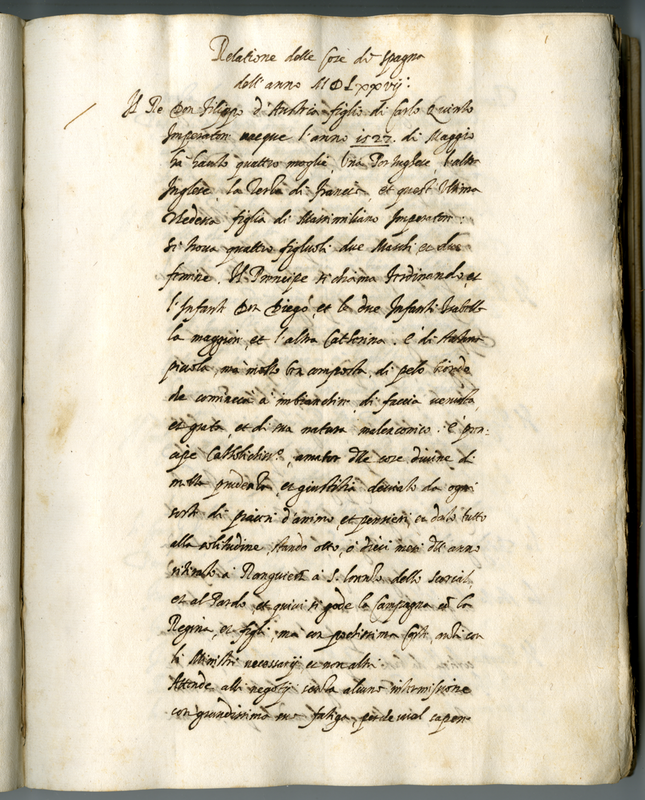 1
Relatione delle Cose di Spagna
dell'anno MDLxxvij:
Il Re Don Filippo d'Austria figlio di Carlo Quinto
Imperatore nacque l'anno 1527. di Maggio
ha havuto quattro moglie, Una Portughese, l'altra
Inglese, la Terza di Francia, et quest'Ultima
Tedesca figlia di Massimiliano Imperatore:
si trova quattro figliuoli due Maschi et due
femine. Il Principe si chiama Ferdinando, et
l'Infante Don Diego, et le due Infanti Isabella
la maggior, et l'altra Catterina. è di statura
piccola, ma molto ben composta, di pelo biondo
che comincia a imbianchire, di faccia venusta,
et grata et di sua natura malenconico. è Prin:
cipe Catholichiss.o, amator delle cose divine di
molta prudenza, et giustitia deviato da ogni
sorte di piaceri d'animo, et pensieri, et dato tutto
alla solitudine, stando otto, o dieci mesi dell'anno
ritirato a Ranguies a S. Lorenzo dello Scorial,
et al Pardo, et quivi si gode la Campagna con la
Regina, et figli, ma con pochissima Corte, anzi con
li Ministri necessarij, et non altri.
Attende alli negotij senza alcuna intermissione
con grandissima sua fatiga, perche vuol saper